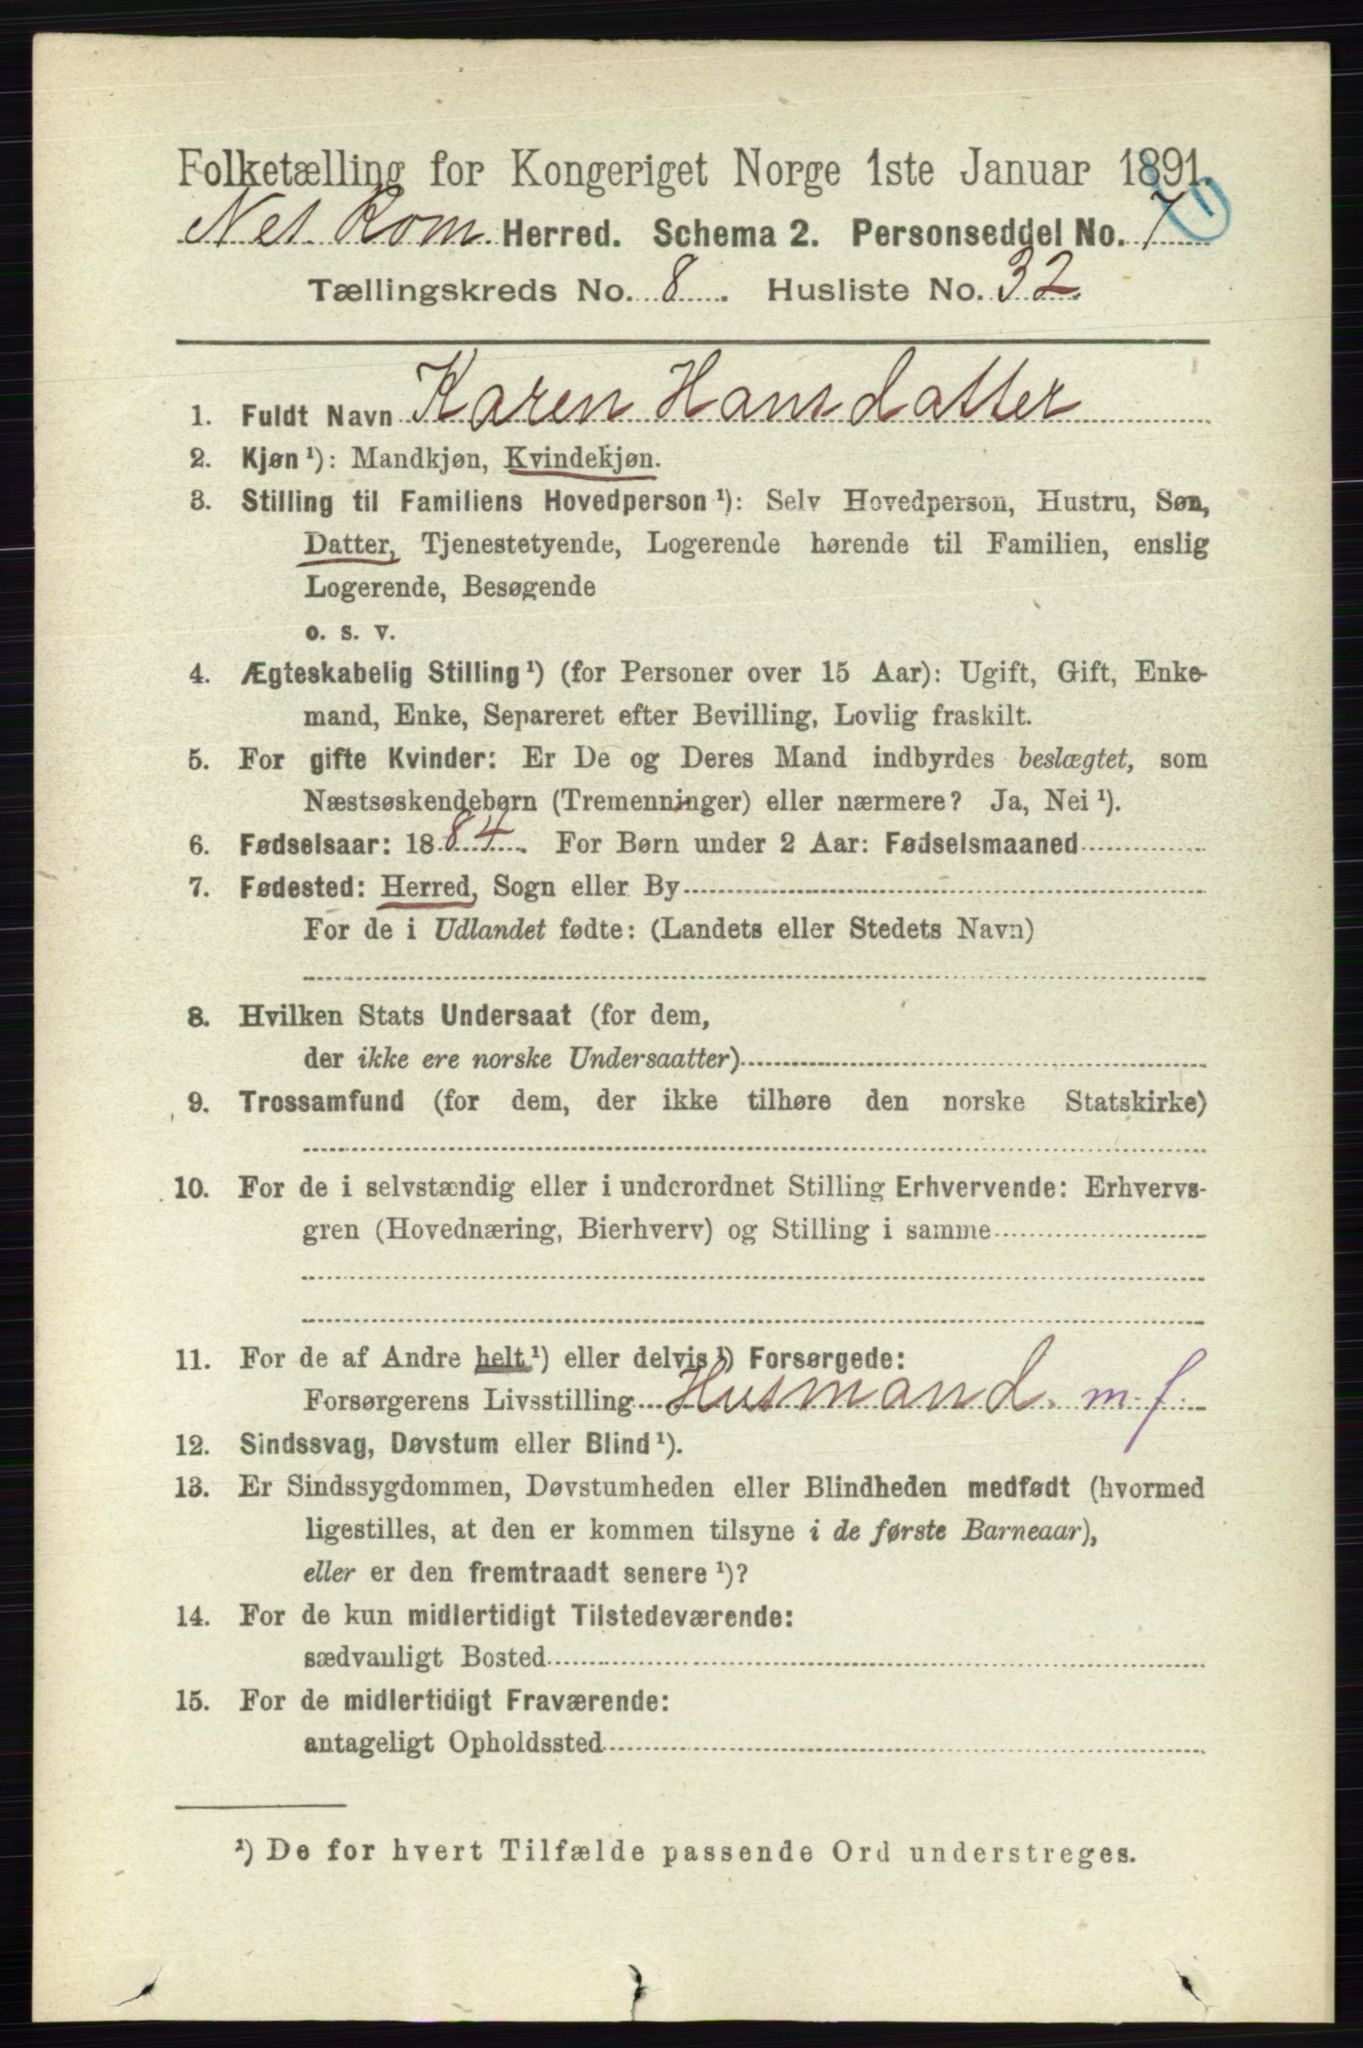 Folketælling for Kongeriget Norge 1ste Januar 1891.
Nes Kom. Herred. Schema 2. Personseddel No. 7
Tællingskreds No. 8. Husliste No. 32.
1. Fuldt Navn Karen Hansdatter
2. Kjøn ¹): Mandkjøn, Kvindekjøn.
3. Stilling til Familiens Hovedperson ¹): Selv Hovedperson, Hustru, Søn,
Datter, Tjenestetyende, Logerende hørende til Familien, enslig
Logerende, Besøgende
o. s. v.
4. Ægteskabelig Stilling ¹) (for Personer over 15 Aar): Ugift, Gift, Enke-
mand, Enke, Separeret efter Bevilling, Lovlig fraskilt.
5. For gifte Kvinder: Er De og Deres Mand indbyrdes beslægtet, som
Næstsøskendebørn (Tremenninger) eller nærmere? Ja, Nei ¹).
6. Fødselsaar: 1884. For Børn under 2 Aar: Fødselsmaaned
7. Fødested: Herred, Sogn eller By
For de i Udlandet fødte: (Landets eller Stedets Navn)
8. Hvilken Stats Undersaat (for dem,
der ikke ere norske Undersaatter)
9. Trossamfund (for dem, der ikke tilhøre den norske Statskirke)
10. For de i selvstændig eller i underordnet Stilling Erhvervende: Erhvervs-
gren (Hovednæring, Bierhverv) og Stilling i samme
11. For de af Andre helt ¹) eller delvis ¹) Forsørgede:
Forsørgerens Livsstilling Husmand. m. f.
12. Sindssvag, Døvstum eller Blind ¹).
13. Er Sindssygdommen, Døvstumheden eller Blindheden medfødt (hvormed
ligestilles, at den er kommen tilsyne i de første Barneaar),
eller er den fremtraadt senere ¹)?
14. For de kun midlertidigt Tilstedeværende:
sædvanligt Bosted
15. For de midlertidigt Fraværende:
antageligt Opholdssted
¹) De for hvert Tilfælde passende Ord understreges.